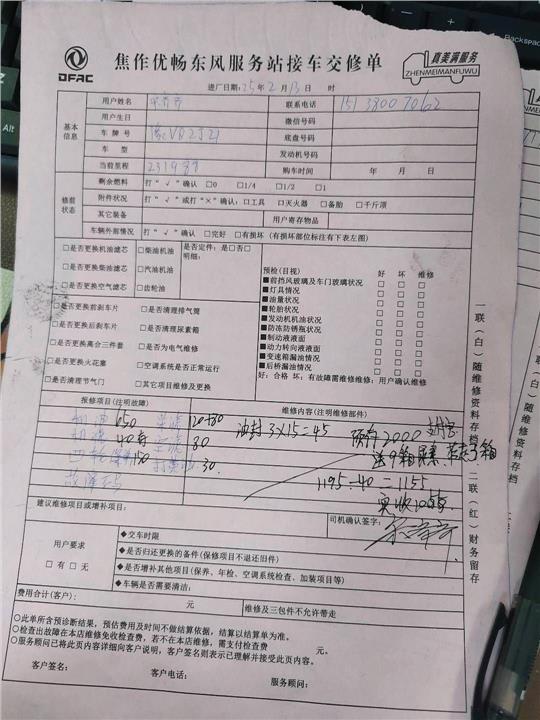 DFAC
焦作优畅东风服务站接车交修单
真美满服务
ZHENMEIMANFUWU
进厂日期:25年2月13日 时
基本信息
用户姓名
联系电话 15138007062
用户生日
微信号码
车牌号
底盘号码
车型
发动机号码
当前里程 231988
购车时间 年 月 日
修前状态
剩余燃料 打“√”确认 □0 □1/4 □1/2 □1
附件状况 打“√”或打“×”确认:□工具 □灭火器 □备胎 □千斤顶
其它装备
用户寄存物品
车辆外部情况 打“√”确认 □完好 □有损坏(有损部位标注有下表左图)
□是否更换机油滤芯 □柴油机油
□是否更换柴油滤芯 □汽油机油
□是否更换空气滤芯 □齿轮油
是否定件:是□否□
明细:
□是否更换前刹车片 □是否清理排气筒
□是否更换后刹车片 □是否清理尿素箱
□是否更换离合三件套 □是否为电气维修
是否更换火花塞 □空调系统是否正常运行
□是否清理节气门 □其它项目维修及更换
预检(目视) 好 坏 维修
■前挡风玻璃及车门玻璃状况 □ □ □
■灯具情况 □ □ □
■油量状况 □ □ □
■轮胎状况 □ □ □
■发动机机油状况 □ □ □
■防冻防锈瓶状况 □ □ □
■制动液液面 □ □ □
■动力转向液液面 □ □ □
■变速箱漏油情况 □ □ □
■后桥漏油情况 □ □ □
好:合格 坏:有故障需维修维修:用户确认维修
报修项目(注明故障)
维修内容(注明维修部件)
机油 650
120+80
油封 3×15=45
预存2000
40
80
150
30
1195-40=1155
实收1055
建议维修项目或增补项目:
司机确认签字:
用户要求
□有 □无
◆交车时限
◆是否归还更换的备件(保修项目不退还旧件)
◆是否增补其他项目(保养、年检、空调系统检查、加装项目等)
◆车辆是否需要清洁:
费用合计(客户): 元
维修及三包件不允许带走
○此单所含预诊断结果,预估费用及时间不做结算依据,结算以结算单为准。
○检查出故障在本店维修免收检查费,若不在本店维修,需支付检查费 元。
○服务顾问已将此页内容详细向客户说明,客户签名则表示已理解并接受此页内容。
客户签名: 客户电话: 服务顾问:
一联(白)随维修资料存档
二联(红)财务留存
Alt
Backspace